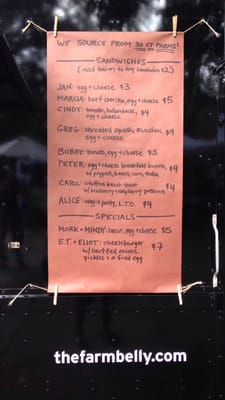 WE SOURCE FROM 30 CT FARMS!
SANDWICHES
(Add bacon to any sandwich $2)
JAN: egg + cheese $3
MARCIA: beef chorizo, egg + cheese $5
CINDY: tomato, hollandaise, $4
egg + cheese
GREG: shredded squash, zucchini, $4
egg + cheese
BOBBY: tomato, egg + cheese $5
PETER: egg + cheese breakfast burrito, $4
w/ peppers, beans, corn, salsa
CAROL: stuffed french toast $4
w/ blueberry raspberry preserves
ALICE: veggie patty, L.T.O. $4
SPECIALS
MORK + MINDY: bacon, egg + cheese $5
E.T. + ELIOT: cheeseburger $7
w/ sautéed onions,
pickles + a fried egg
thefarmbelly.com